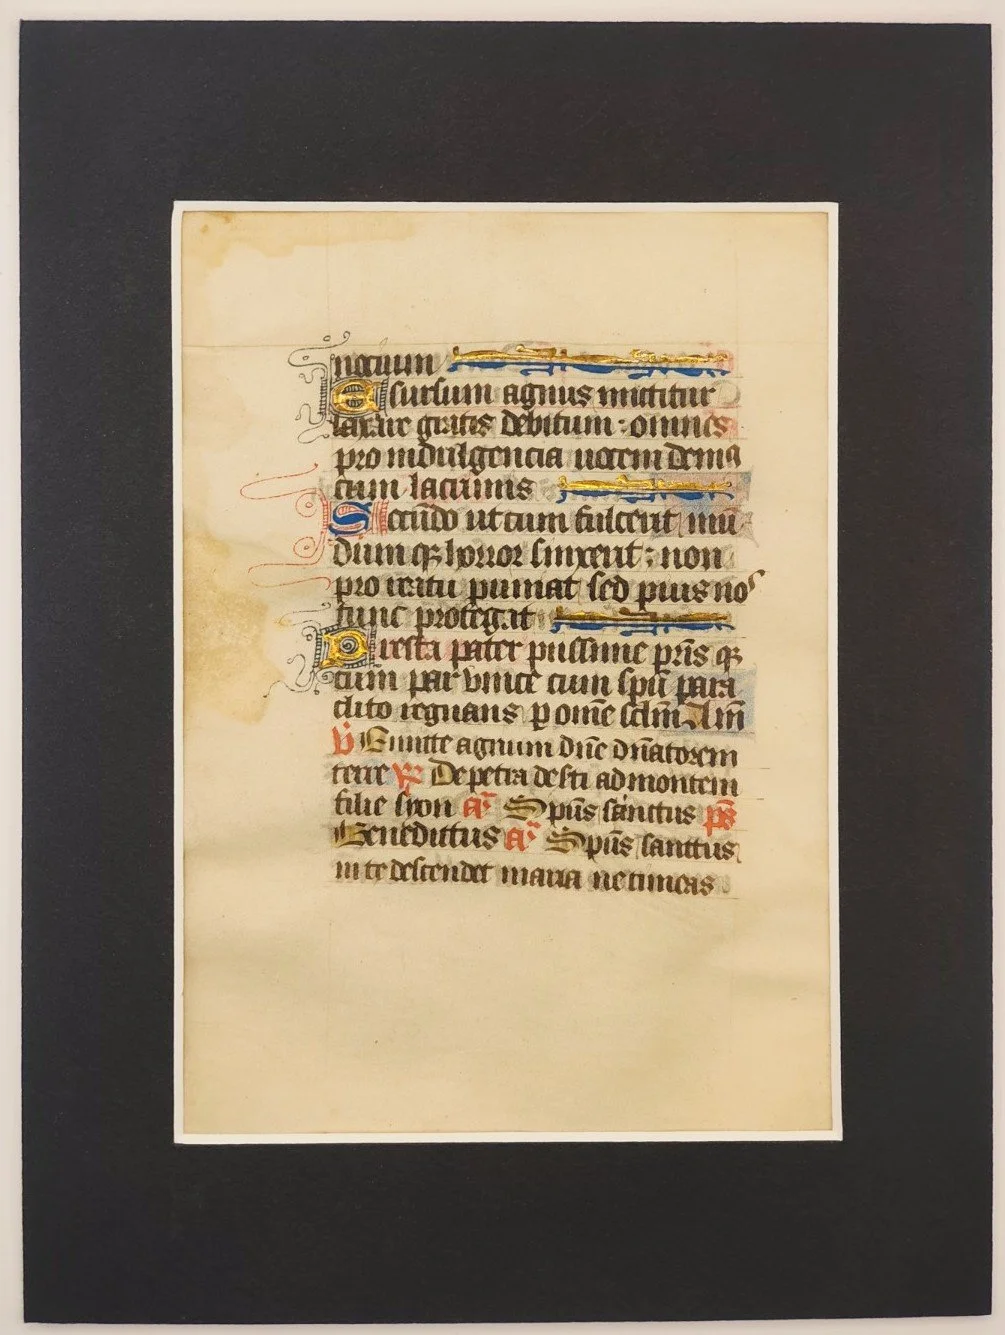 noxium
E sursum agnus mittitur
laxare gratis debitum : omnes
pro indulgencia uocem dem9
cum lacrimis
Secūdo ut cum fulcerit mū
dum qȝ horror sinxerit : non
pro reatu puniat sed pius nos
tunc protegat
Presta pater piissime pr̄is qȝ
cum par vnice cum spū para
clito regnans p om̄e sclm̄ Am̄
v̄ Emitte agnum dn̄e dn̄atorem
terre R̄ De petra deserti ad montem
filie syon a᷑ Spūs sanctus ps̄
Benedictus a᷑ Spūs sanctus
in te descendet maria ne timeas